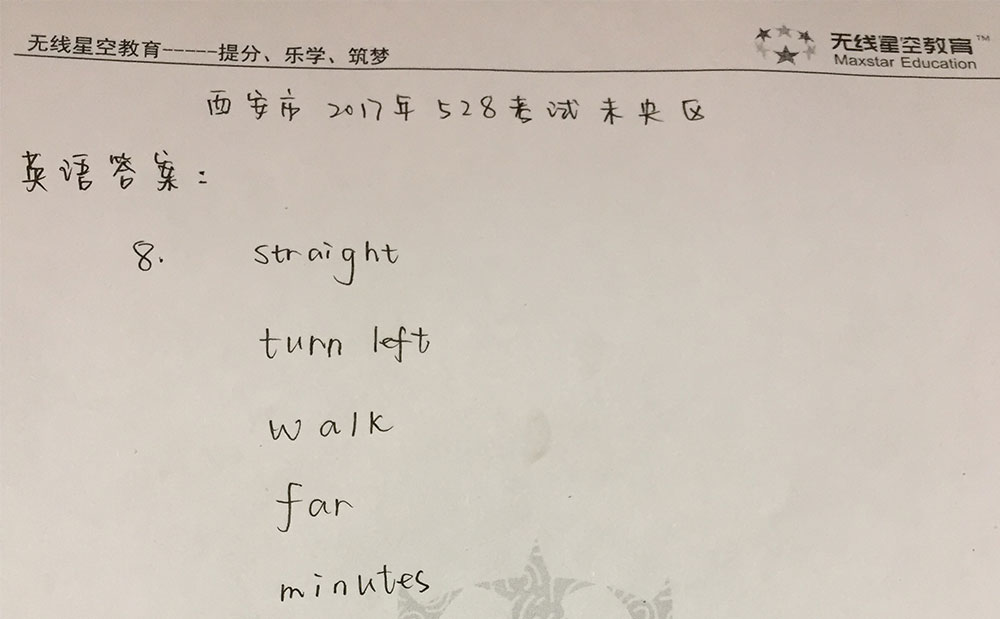 无线星空教育-----提分、乐学、筑梦
无线星空教育™
Maxstar Education
西安市 2017年 528考试未央区
英语答案：
8. straight
turn left
walk
far
minutes